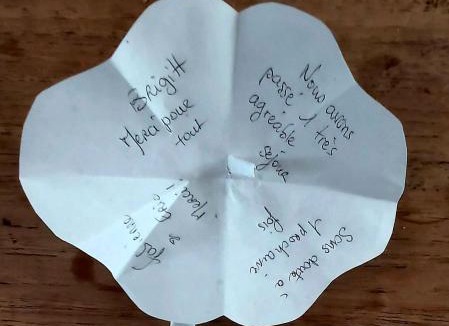 Brigitt
Merci pour
tout
Nous avons
passé 1 très
agréable
séjour
Sans doute à
1 prochaine
fois
Merci !
& Eric
Fabienne